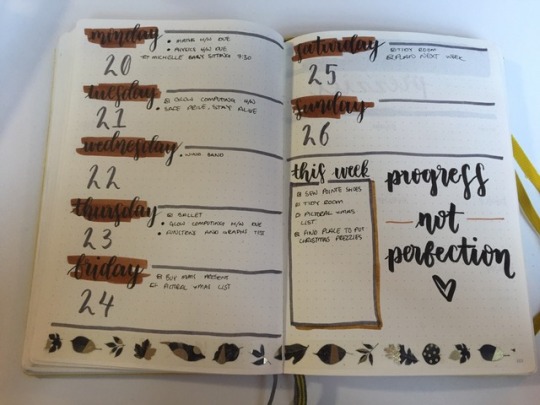 monday
20
physics H/W due
michelle baby sitting 7:30
tuesday
21
glow computing H/W
safe ride, stay alive
wednesday
22
wind band
thursday
23
ballet
glow computing H/W due
functions and graphs test
friday
24
buy mam presents
pictorial xmas list
saturday
25
tidy room
plan next week
sunday
26
this week
sew pointe shoes
tidy room
pictorial xmas
list
find place to put
christmas prezzies
progress
not
perfection